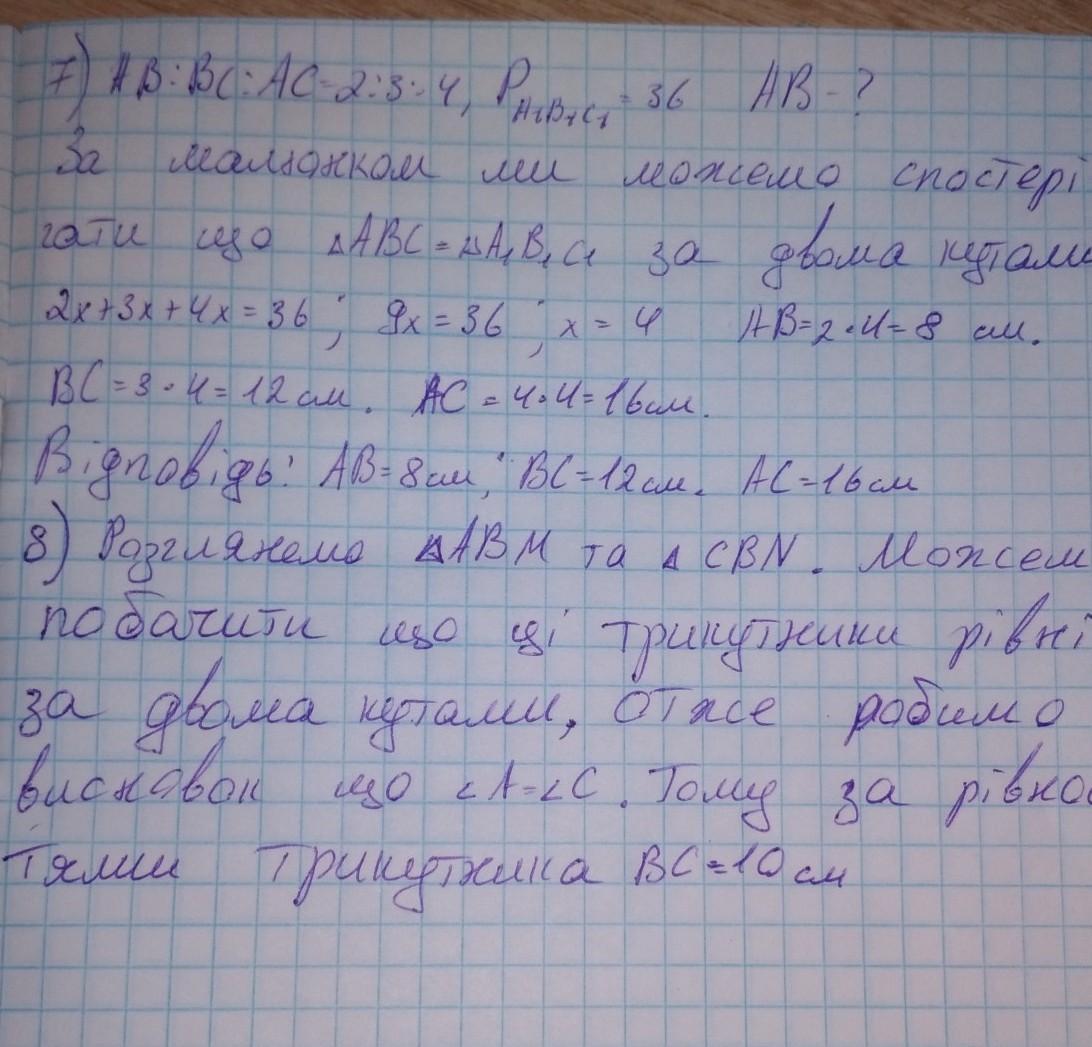 7) AB:BC:AC=2:3:4, P_A₁B₁C₁ = 36 AB - ?
За малюнком ми можемо спостері
гати що △ABC = △A₁B₁C₁ за двома кутами
2x+3x+4x=36 ; 9x=36 ; x = 4 AB=2·4=8 см.
BC=3·4=12см. AC=4·4=16см.
Відповідь: AB=8см; BC=12см. AC=16см
8) Розглянемо △ABM та △CBN. Можем
побачити що ці трикутники рівні
за двома кутами, отже робимо
висновок що ∠A=∠C. Тому за рівнос
тями трикутника BC=10см